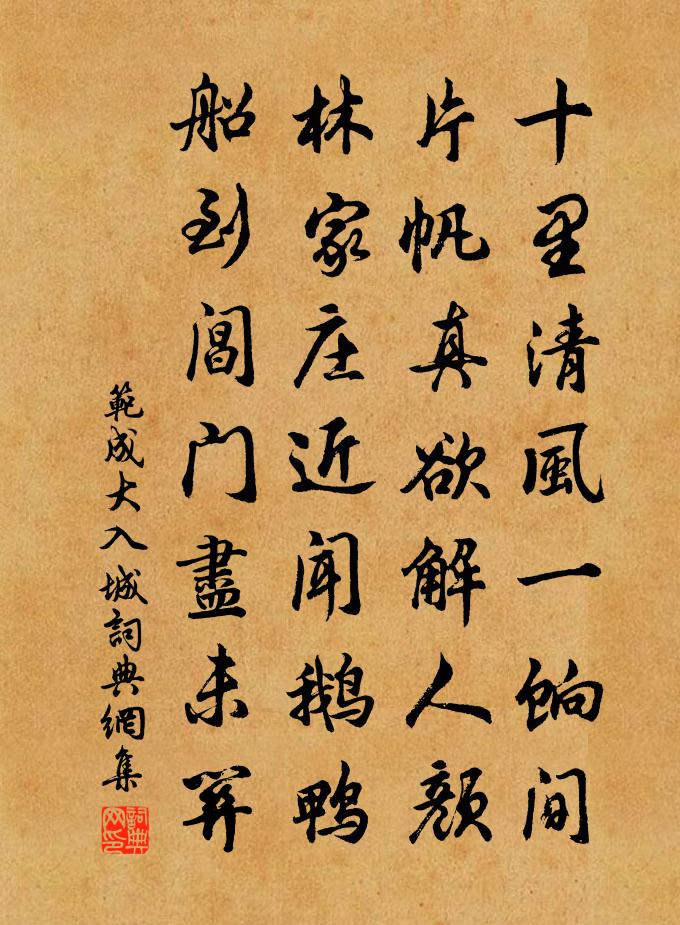 十里清風一餉间
片帆真欲解人顔
林家庄近闻鹅鸭
船到阊门盡未關
範成大入城詞典網集
詞典网印